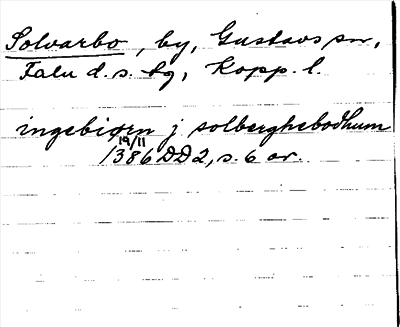 Solvarbo, by, Gustavs sn,
Falu d. s. tg, Kopp. l.
ingebiørn j solberghebodhum
19/11
1386 DD2, s. 6 or.